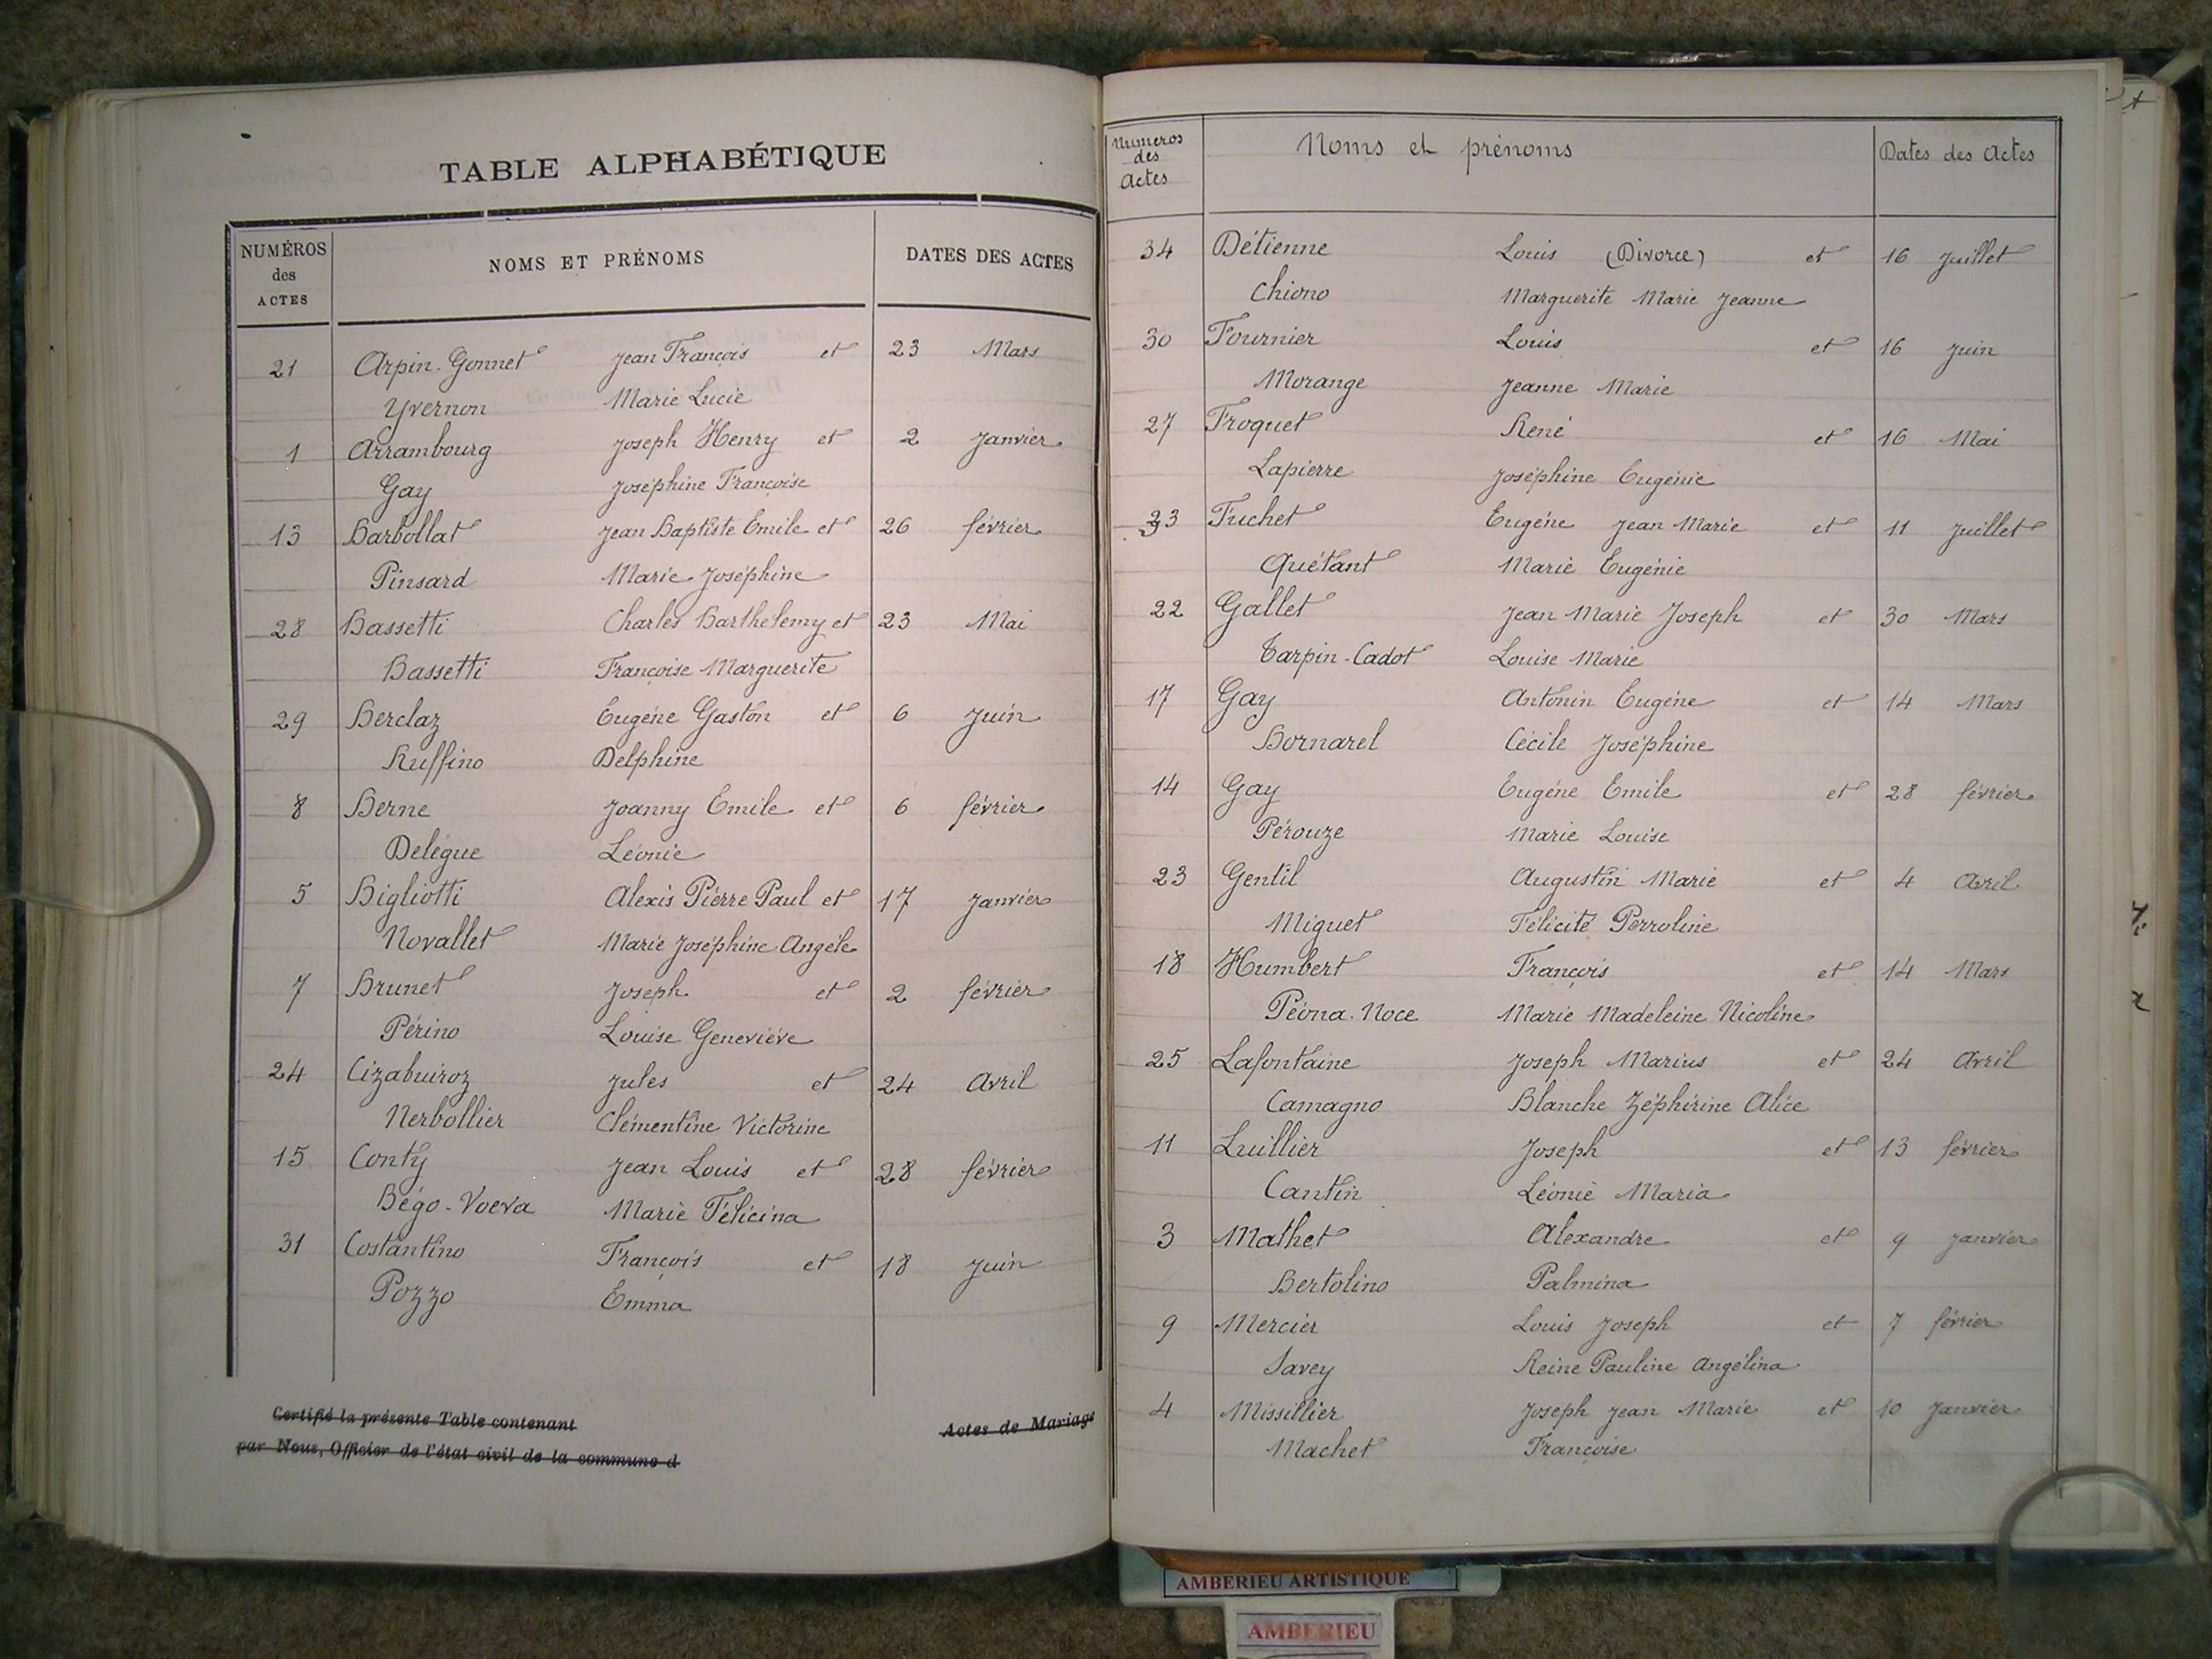 TABLE ALPHABÉTIQUE
NUMÉROS des ACTES NOMS ET PRÉNOMS DATES DES ACTES
21 Arpin-Gonnet Jean François et 23 Mars
Yvernon Marie Lucie
1 Arrambourg Joseph Henry et 2 Janvier
Gay Joséphine Françoise
13 Barbollat Jean Baptiste Emile et 26 février
Pinsard Marie Joséphine
28 Bassetti Charles Barthélemy et 23 Mai
Bassetti Françoise Marguerite
29 Berclaz Eugène Gaston et 6 Juin
Ruffino Delphine
8 Berne Joanny Emile et 6 février
Delégue Léonie
5 Bigliotti Alexis Pierre Paul et 17 Janvier
Novallet Marie Joséphine Angèle
7 Brunet Joseph et 2 février
Périno Louise Geneviève
24 Cizabuiroz Jules et 24 Avril
Nerbollier Clémentine Victorine
15 Conty Jean Louis et 28 février
Bégo-Voeva Marie Félicina
31 Costantino François et 18 Juin
Pozzo Emma
Certifié la présente Table contenant Actes de Mariage
par Nous, Officier de l'état civil de la commune d
Numeros des Actes Noms et prénoms Dates des Actes
34 Détienne Louis (Divorce) et 16 Juillet
Chiono Marguerite Marie Jeanne
30 Fournier Louis et 16 Juin
Morange Jeanne Marie
27 Froquet René et 16 Mai
Lapierre Joséphine Eugénie
33 Fuchet Eugène Jean Marie et 11 Juillet
Quétant Marie Eugénie
22 Gallet Jean Marie Joseph et 30 Mars
Tarpin-Cadot Louise Marie
17 Gay Antonin Eugène et 14 Mars
Bornarel Cécile Joséphine
14 Gay Eugène Emile et 28 février
Pérouze Marie Louise
23 Gentil Augustin Marie et 4 Avril
Miguet Félicité Perroline
18 Humbert François et 14 Mars
Péona-Noce Marie Madeleine Nicoline
25 Lafontaine Joseph Marius et 24 Avril
Camagno Blanche Zéphirine Alice
11 Luillier Joseph et 13 février
Cantin Léonie Maria
3 Mathet Alexandre et 9 Janvier
Bertolino Palmina
9 Mercier Louis Joseph et 7 février
Savey Reine Pauline Angélina
4 Missillier Joseph Jean Marie et 10 Janvier
Machet Françoise
AMBERIEU ARTISTIQUE
AMBERIEU